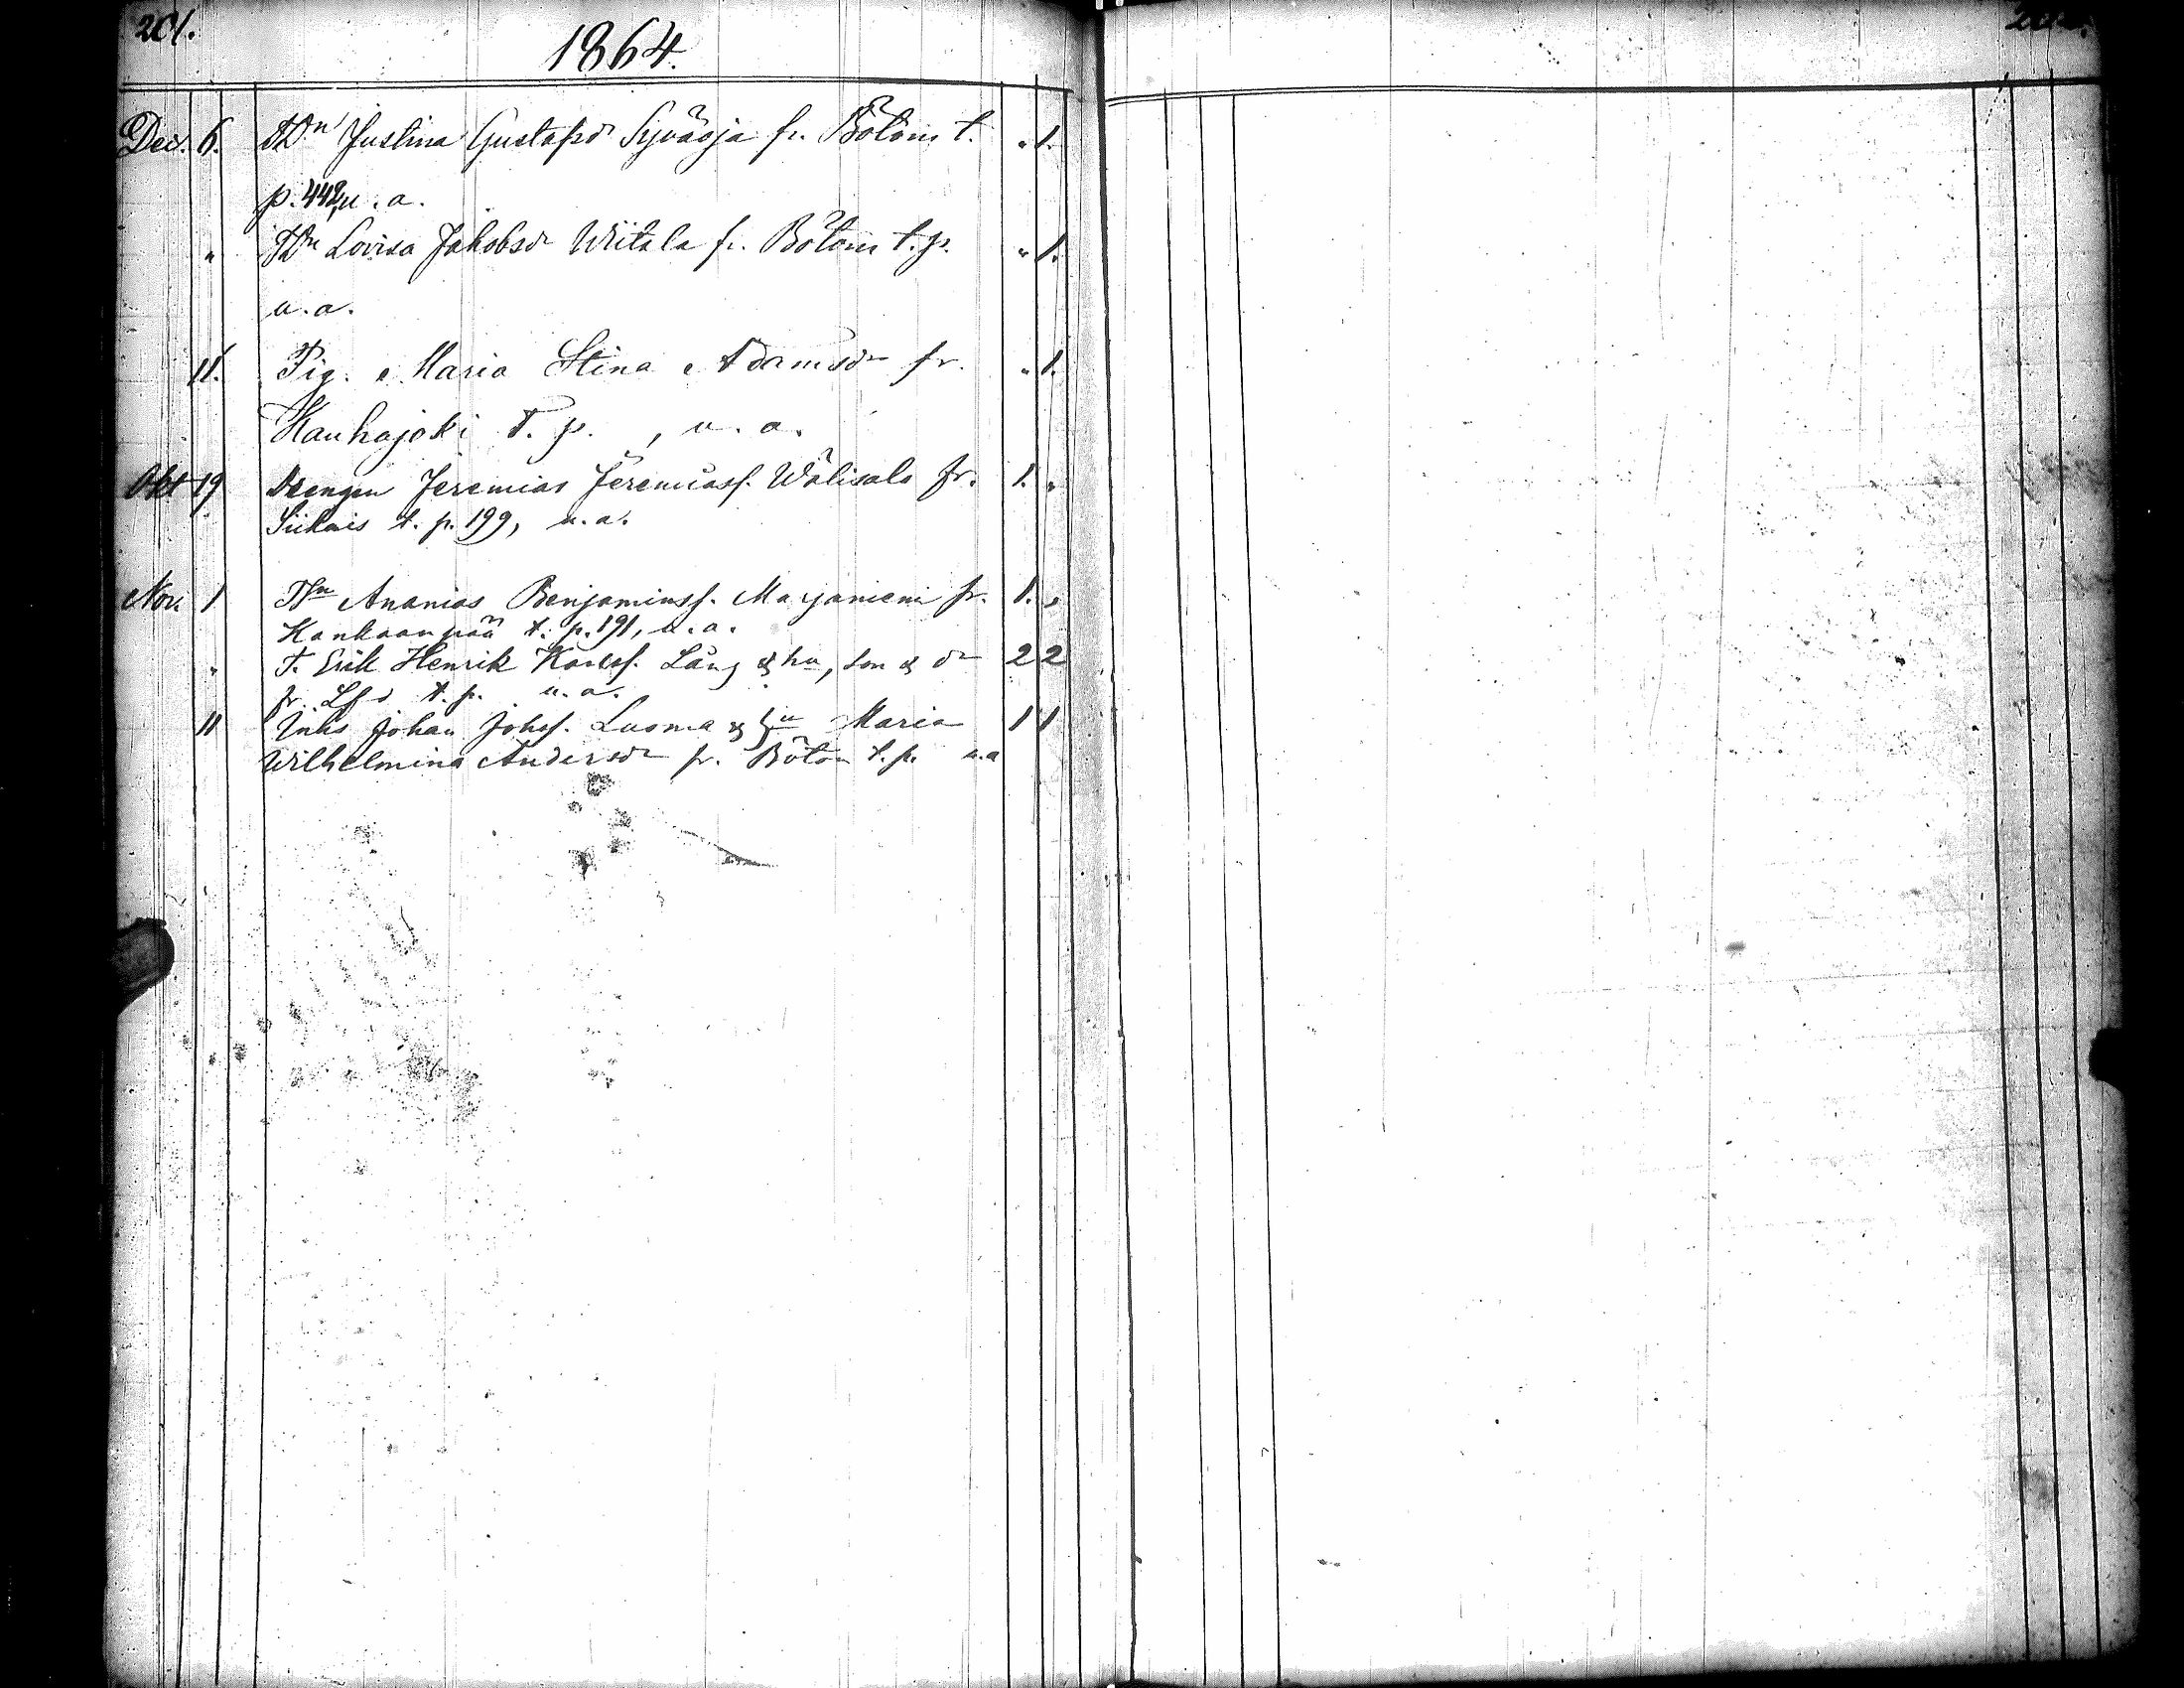 201.
1864.
Dec. 6. Tdn Justina Gustafsdr Syväoja fr. Bötom t. " 1.
p. 442, u. a.
" Tdn Lovisa Jakobsdr Wiitala fr. Bötom t. p. " 1.
u. a.
11. Pig. Maria Stina Adamsdr fr. " 1.
Kauhajoki t. p. , u. a.
Okt 19 Drengen Jeremias Jeremiass. Wälisalo fr. 1. "
Siikais t. p. 199, u. a.
Nov. 1 Tsn Ananias Benjaminss. Marjaniemi fr. 1. "
Kankaanpää t. p. 191, u. a.
" T. Erik Henrik Karlss. Lång & hu, son & dr 2 2
fr. Lfd t. p. u. a.
11 Inhs Johan Johss. Luoma & hu Maria 1 1
Wilhelmina Andersdr fr. Bötom t. p. u. a